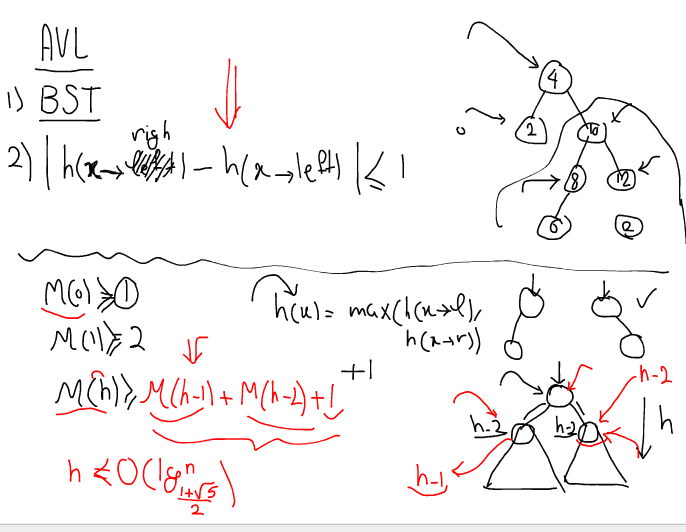 AVL
1) BST
2) |h(x→righ) - h(x→left)| ≤ 1
4
2
10
8
12
6
M(0) ≥ 1
M(1) ≥ 2
M(h) ≥ M(h-1) + M(h-2) + 1
h ≤ O(lg n 1+√5/2)
h(x) = max(h(x→l),
h(x→r))
+1
h-2
h-2
h-2
h
h-1